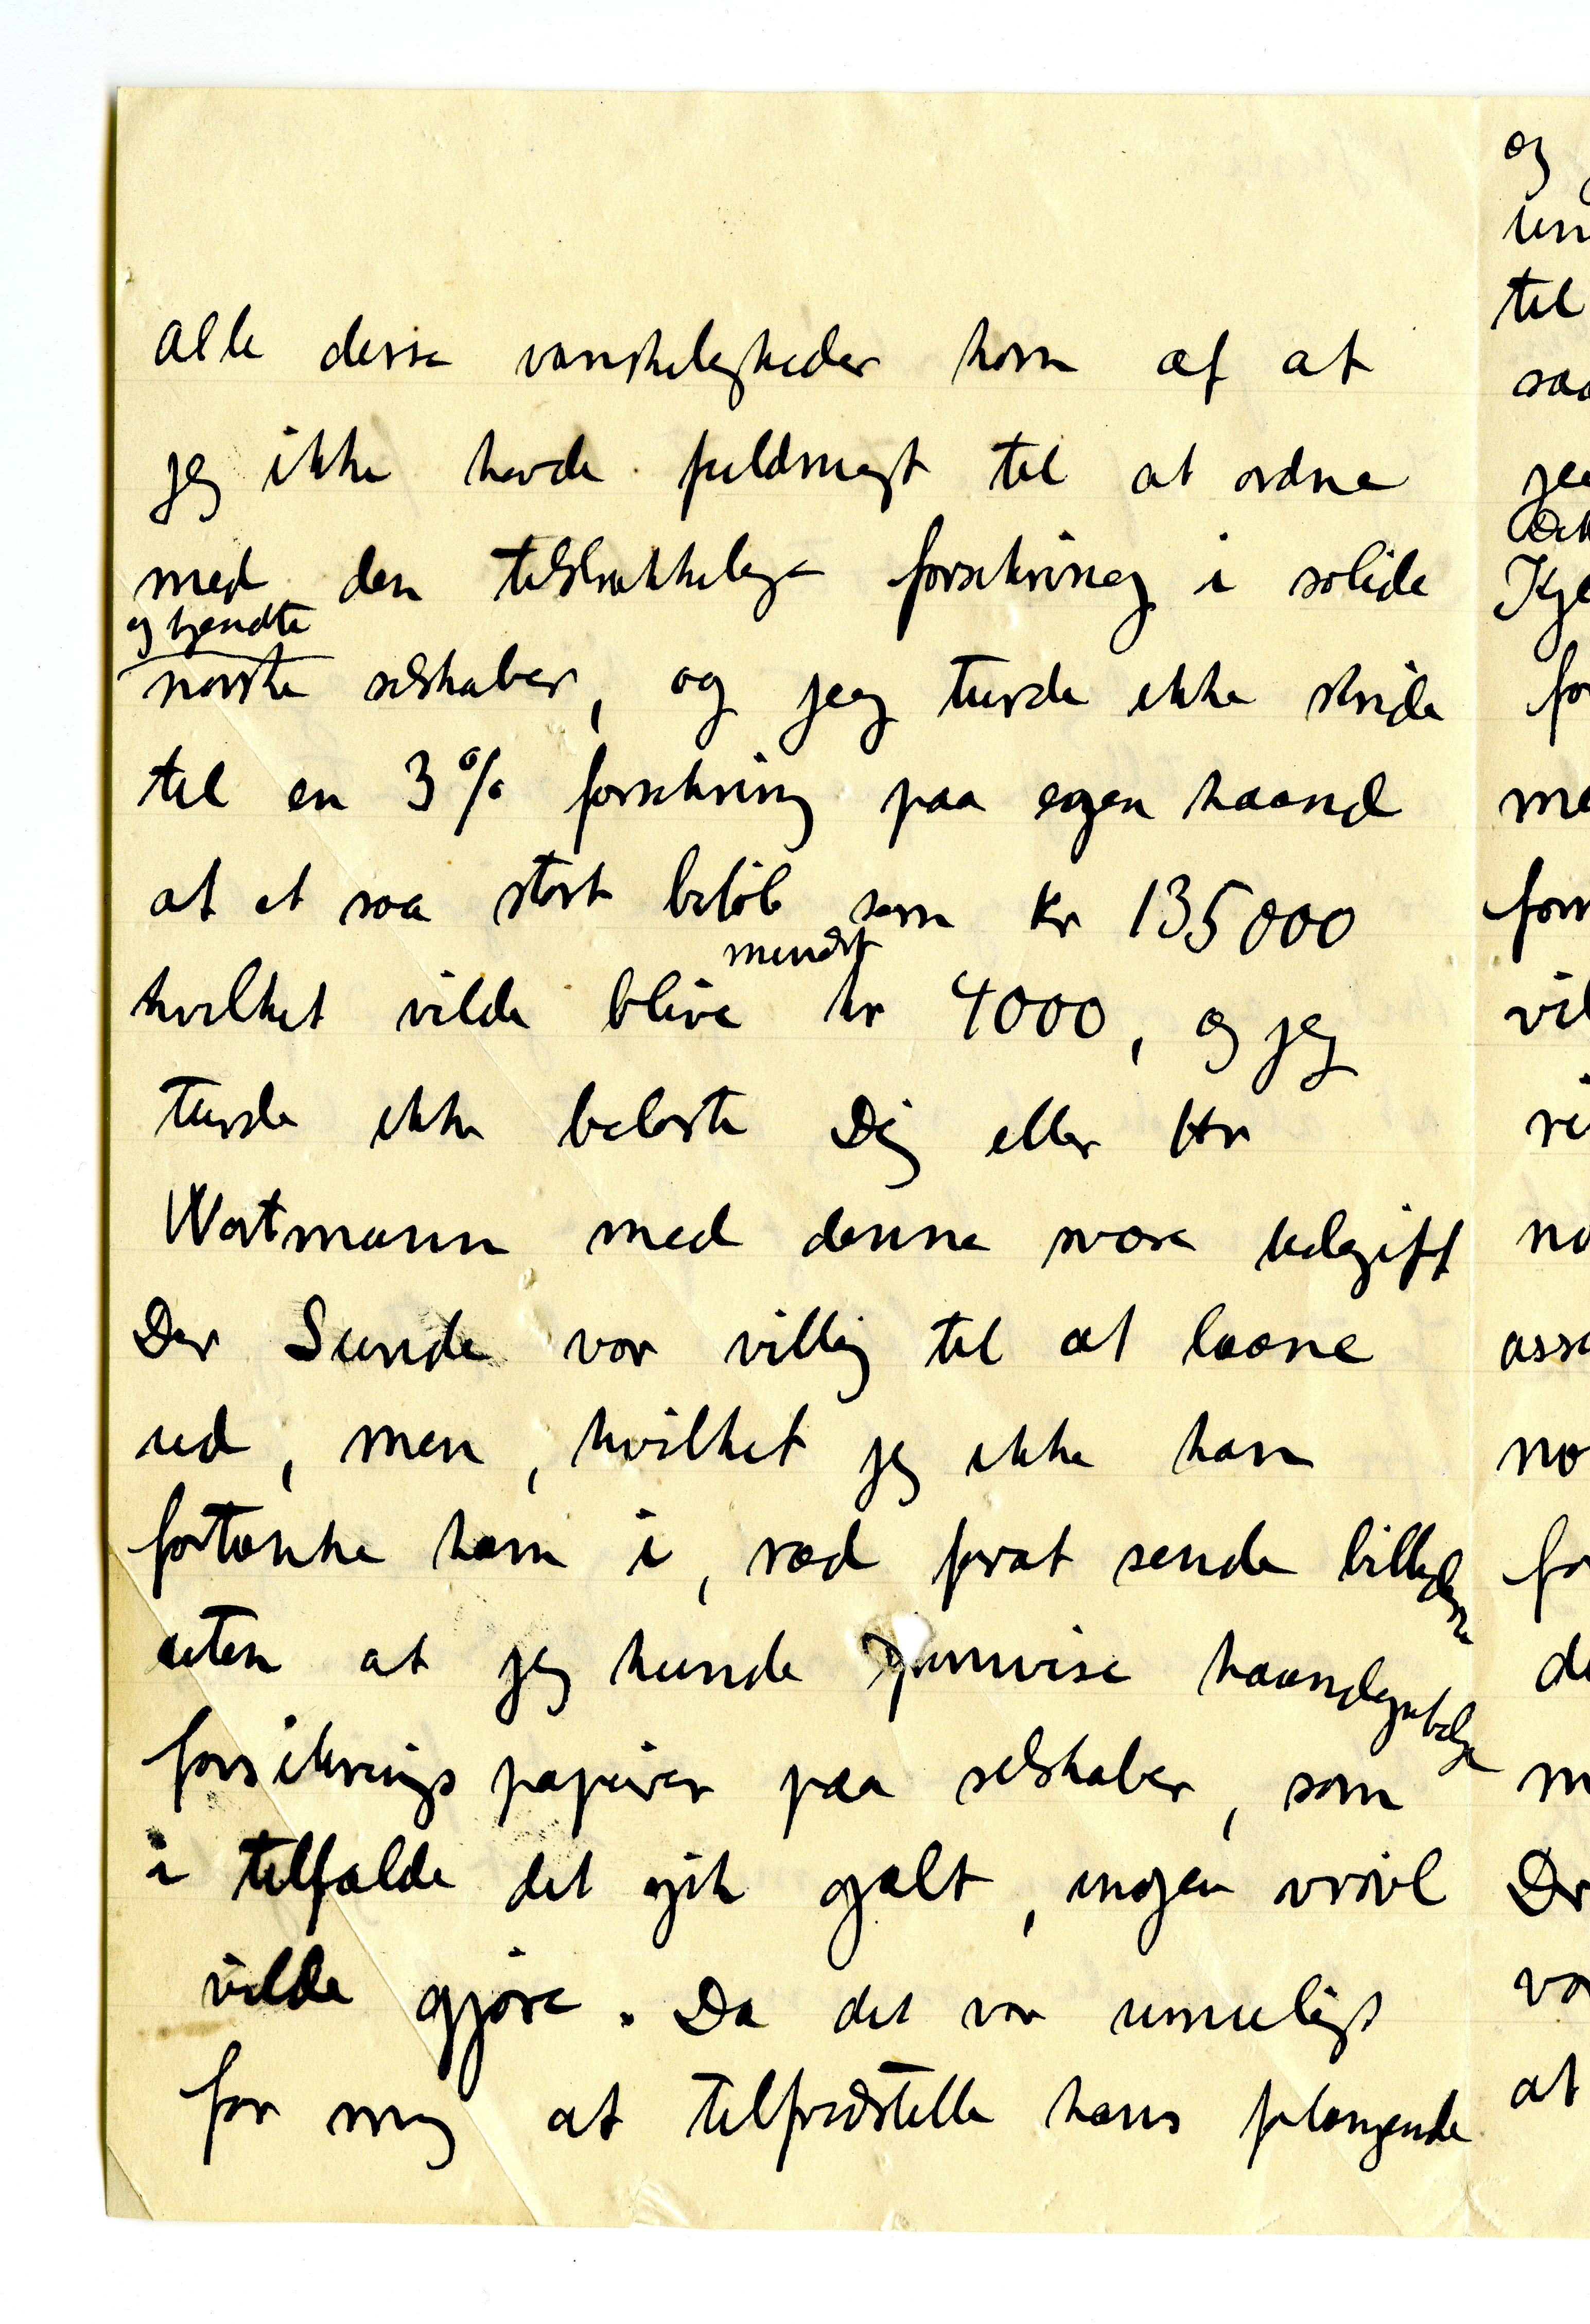 Alle disse vanskeligheder kom af at
jeg ikke havde fuldmagt til at ordne
med den tilstrækkelige forsikring i solide
og kjendte
norske selskaber, og jeg turde ikke skride
til en 3% forsikring paa egen haand
af et saa stort beløb som Kr 135000
mindst
hvilket vilde blive kr 4000, og jeg
turde ikke belaste Dig eller Hr
Wartmann med denne svære udgift
Der Sunde var villig til at laane
ud, men, hvilket jeg ikke kan
fortænke ham i, ræd forat sende billederne
uten at jeg kunde haandgribelige
forsikrings papirer paa selskaber, som
i tilfælde det gik galt, ingen vrøvl
vilde gjøre. Da det var umuligt
for mig at tilfredstille hans forlangende
og
til
saa
jeg
Kje
for
me
vil
no
for
m
at